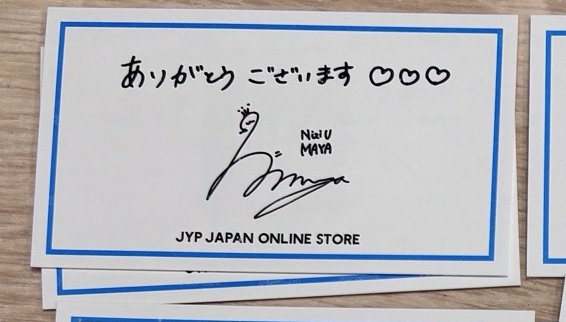 ありがとうございます ♡♡♡
NiziU
MAYA
JYP JAPAN ONLINE STORE